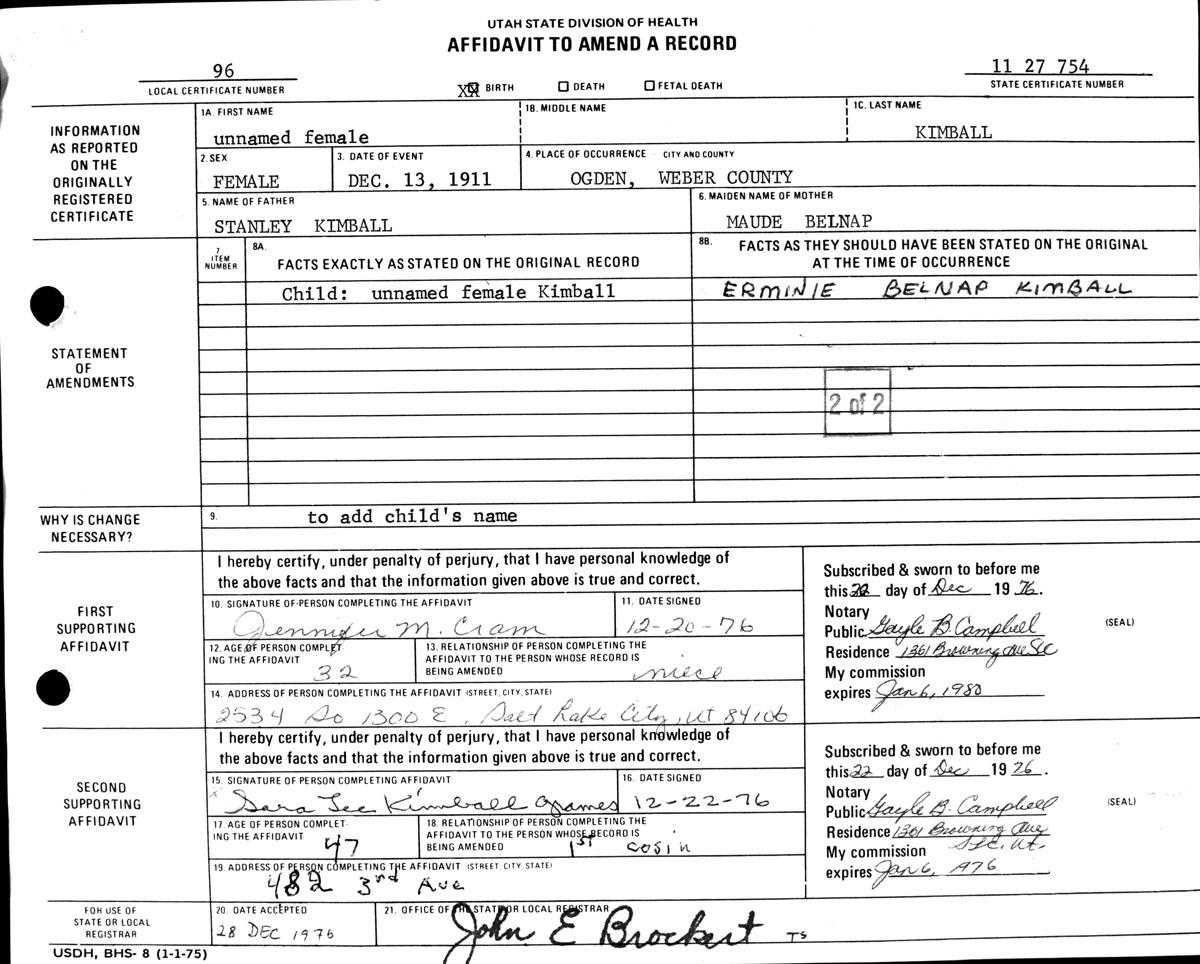 UTAH STATE DIVISION OF HEALTH
AFFIDAVIT TO AMEND A RECORD
96
LOCAL CERTIFICATE NUMBER
XX BIRTH DEATH FETAL DEATH
11 27 754
STATE CERTIFICATE NUMBER
INFORMATION AS REPORTED ON THE ORIGINALLY REGISTERED CERTIFICATE
1A. FIRST NAME 1B. MIDDLE NAME 1C. LAST NAME
unnamed female KIMBALL
2. SEX 3. DATE OF EVENT 4. PLACE OF OCCURRENCE - CITY AND COUNTY
FEMALE DEC. 13, 1911 OGDEN, WEBER COUNTY
5. NAME OF FATHER 6. MAIDEN NAME OF MOTHER
STANLEY KIMBALL MAUDE BELNAP
STATEMENT OF AMENDMENTS
7 ITEM NUMBER
8A. FACTS EXACTLY AS STATED ON THE ORIGINAL RECORD
8B. FACTS AS THEY SHOULD HAVE BEEN STATED ON THE ORIGINAL
AT THE TIME OF OCCURRENCE
Child: unnamed female Kimball ERMINIE BELNAP KIMBALL
2 of 2
WHY IS CHANGE NECESSARY?
9. to add child's name
FIRST SUPPORTING AFFIDAVIT
I hereby certify, under penalty of perjury, that I have personal knowledge of
the above facts and that the information given above is true and correct.
10. SIGNATURE OF PERSON COMPLETING THE AFFIDAVIT 11. DATE SIGNED
Jennifer M. Cram 12-20-76
12. AGE OF PERSON COMPLETING THE AFFIDAVIT
32
13. RELATIONSHIP OF PERSON COMPLETING THE
AFFIDAVIT TO THE PERSON WHOSE RECORD IS
BEING AMENDED niece
14. ADDRESS OF PERSON COMPLETING THE AFFIDAVIT (STREET, CITY, STATE)
2534 So 1300 E, Salt Lake City, UT 84106
Subscribed & sworn to before me
this 22 day of Dec 1976.
Notary
Public Gayle B. Campbell
(SEAL)
Residence 1361 Browning Ave SLC
My commission
expires Jan 6, 1980
SECOND SUPPORTING AFFIDAVIT
I hereby certify, under penalty of perjury, that I have personal knowledge of
the above facts and that the information given above is true and correct.
15. SIGNATURE OF PERSON COMPLETING AFFIDAVIT 16. DATE SIGNED
Sara Lee Kimball 12-22-76
17. AGE OF PERSON COMPLETING THE AFFIDAVIT
47
18. RELATIONSHIP OF PERSON COMPLETING THE
AFFIDAVIT TO THE PERSON WHOSE RECORD IS
BEING AMENDED 1st cosin
19. ADDRESS OF PERSON COMPLETING THE AFFIDAVIT (STREET, CITY, STATE)
482 3rd Ave
Subscribed & sworn to before me
this 22 day of Dec 1976.
Notary
Public Gayle B. Campbell
(SEAL)
Residence 1361 Browning Ave
SLC. Ut.
My commission
expires Jan 6, 1976
FOR USE OF STATE OR LOCAL REGISTRAR
20. DATE ACCEPTED 21. OFFICE OF THE STATE OR LOCAL REGISTRAR
28 DEC 1976 John E Brockert TS
USDH, BHS- 8 (1-1-75)